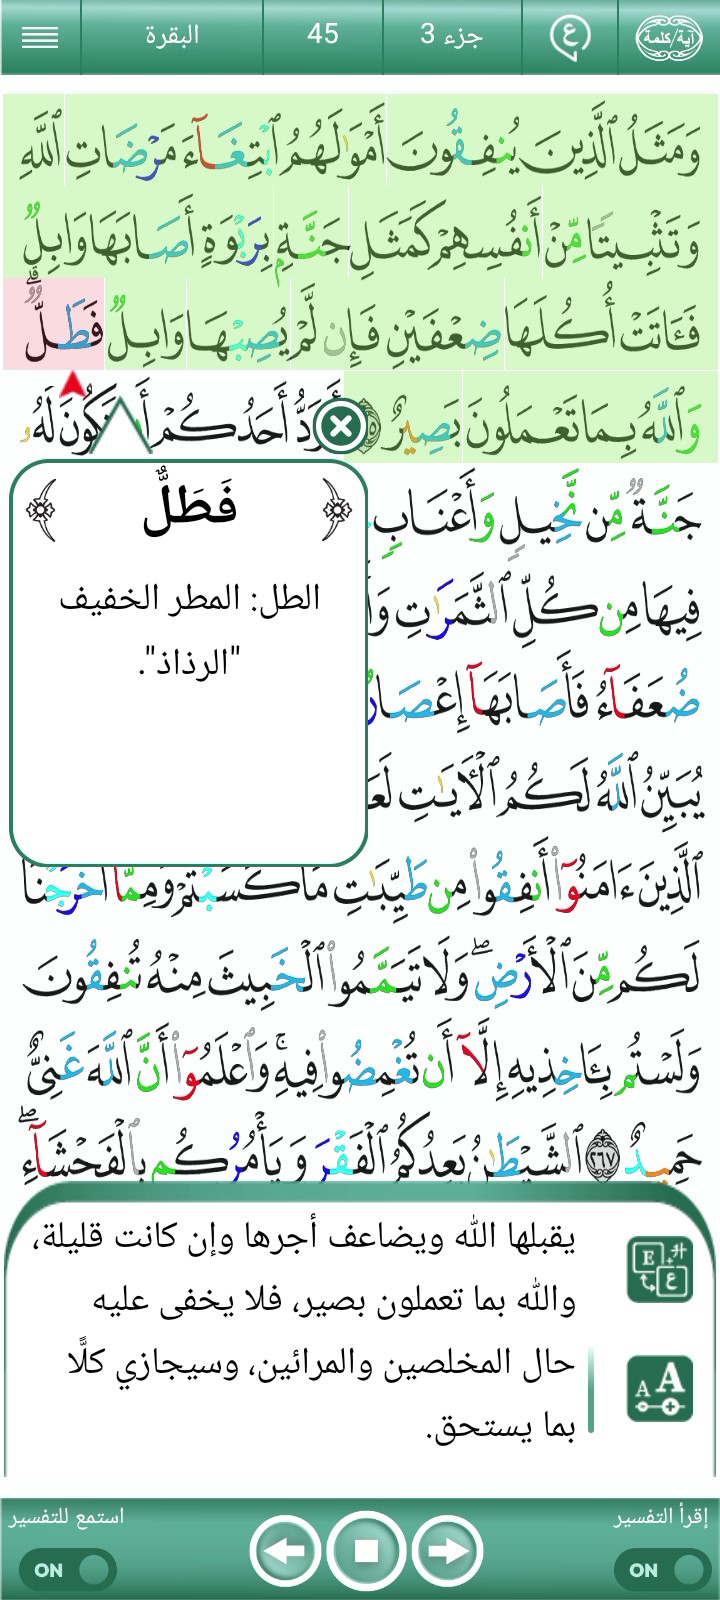 آية/كلمة
ع
جزء 3
45
البقرة
وَمَثَلُ ٱلَّذِينَ يُنفِقُونَ أَمْوَٰلَهُمُ ٱبْتِغَآءَ مَرْضَاتِ ٱللَّهِ
وَتَثْبِيتًا مِّنْ أَنفُسِهِمْ كَمَثَلِ جَنَّةٍۭ بِرَبْوَةٍ أَصَابَهَا وَابِلٌ
فَـَٔاتَتْ أُكُلَهَا ضِعْفَيْنِ فَإِن لَّمْ يُصِبْهَا وَابِلٌ فَطَلٌّ ۗ
وَٱللَّهُ بِمَا تَعْمَلُونَ بَصِيرٌ أَحَدُكُمْ لَهُۥ
فَطَلٌّ
الطل: المطر الخفيف
"الرذاذ".
جَنَّةٌ مِّن نَّخِيلٍ وَأَعْنَابٍ
فِيهَا مِن كُلِّ ٱلثَّمَرَٰتِ
ضُعَفَآءُ فَأَصَابَهَآ إِعْصَارٌ
يُبَيِّنُ ٱللَّهُ لَكُمُ ٱلْـَٔايَـٰتِ
ٱلَّذِينَ ءَامَنُوٓا۟ أَنفِقُوا۟ مِن طَيِّبَـٰتِ مَا كَسَبْتُمْ وَمِمَّآ أَخْرَجْنَا
لَكُم مِّنَ ٱلْأَرْضِ ۖ وَلَا تَيَمَّمُوا۟ ٱلْخَبِيثَ مِنْهُ تُنفِقُونَ
وَلَسْتُم بِـَٔاخِذِيهِ إِلَّآ أَن تُغْمِضُوا۟ فِيهِ ۚ وَٱعْلَمُوٓا۟ أَنَّ ٱللَّهَ غَنِىٌّ
حَمِيدٌ ٢٦٧ ٱلشَّيْطَـٰنُ يَعِدُكُمُ ٱلْفَقْرَ وَيَأْمُرُكُم بِٱلْفَحْشَآءِ ۖ
يقبلها الله ويضاعف أجرها وإن كانت قليلة،
والله بما تعملون بصير، فلا يخفى عليه
حال المخلصين والمرائين، وسيجازي كلًّا
بما يستحق.
E
ع
A A
إقرأ التفسير
استمع للتفسير
ON
ON